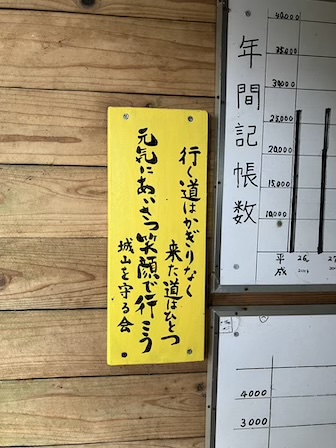 行く道はかぎりなく
来た道はひとつ
元気にあいさつ笑顔で行こう
城山を守る会
年間記帳数
40,000
35,000
30,000
25,000
20,000
15,000
10,000
平成
26
27
4000
3000